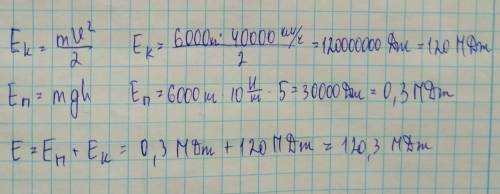 Eк = mv²/2 Eк = 6000кг · 40000 м/с / 2 = 120000000 Дж = 120 МДж
Eп = mgh Eп = 6000кг · 10 Н/кг · 5 = 30000 Дж = 0,3 МДж
E = Eп + Eк = 0,3 МДж + 120 МДж = 120,3 МДж